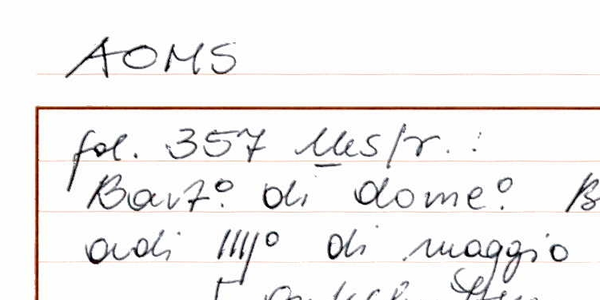 AOMS
fol. 357 Ms/r. :
Bart.º di dome.º B
adi IIIJº di maggio